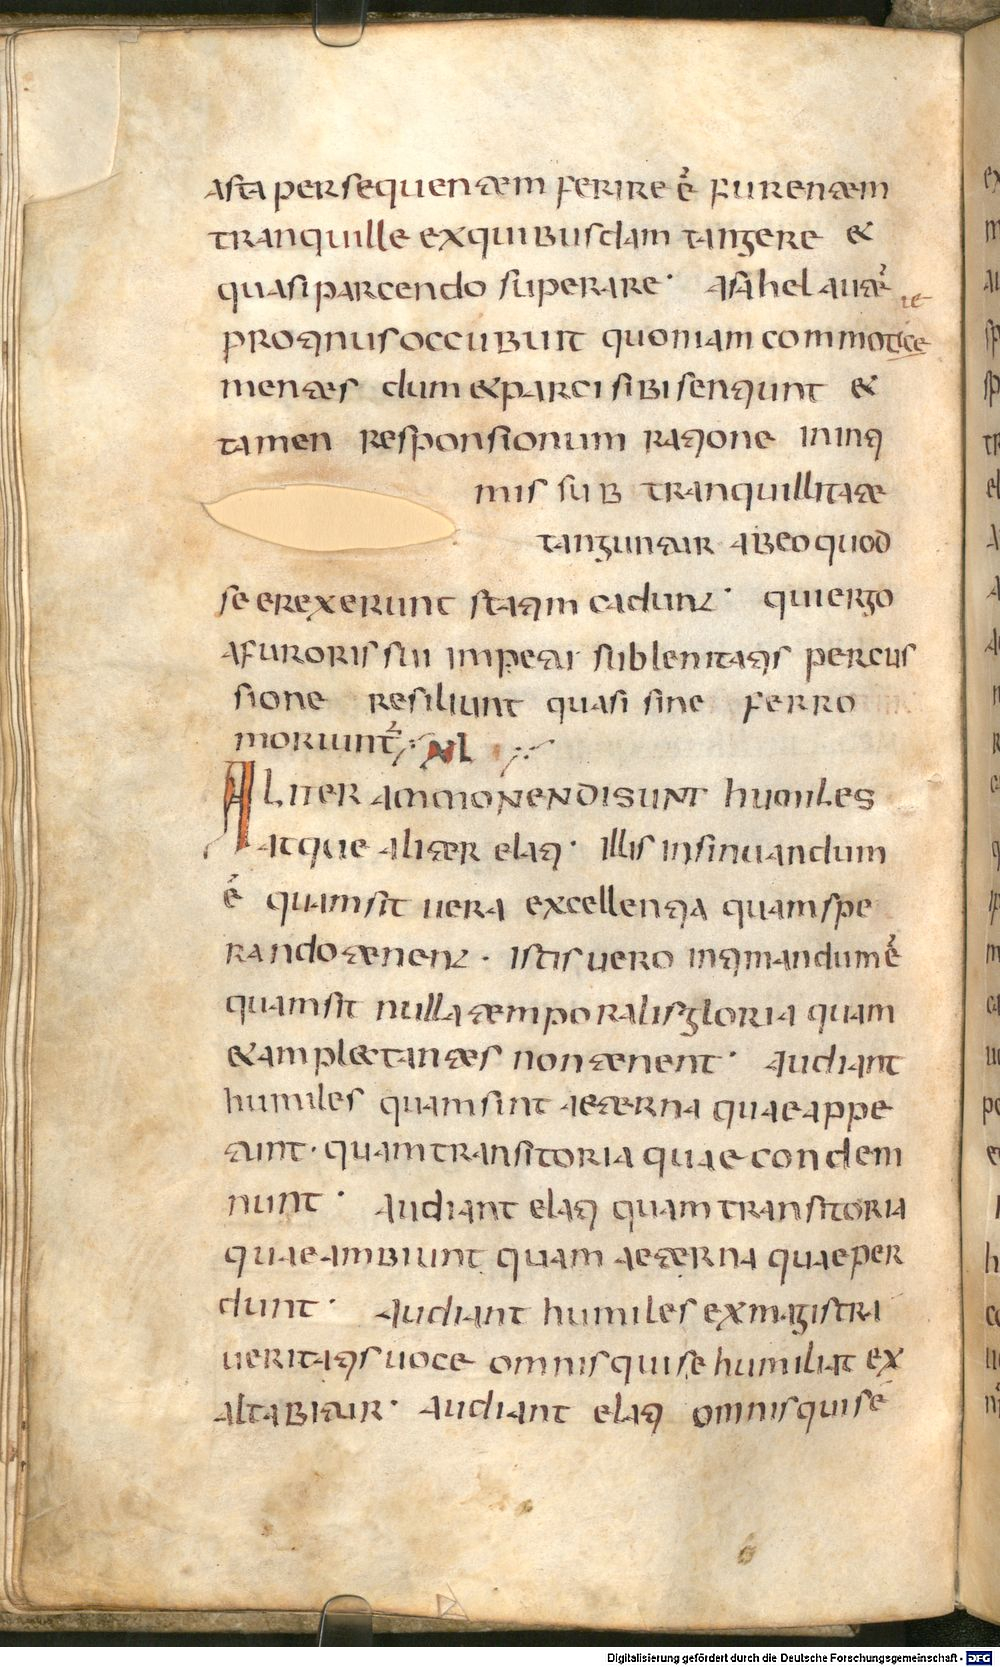 asta persequentem ferire ē furentem
tranquille exquibusdam tangere &
quasi parcendo superare· asahel autē
protinus occubuit quoniam commotice
re
mentes dum & parci sibi sentiunt &
tamen responsionum ratione in inti
mis sub tranquillitate
tanguntur abeo quod
se erexerunt statim cadunt· qui ergo
a furoris sui impetu sub lenitatis percus
sione resiliunt quasi sine ferro
moriunt̄ XL
Aliter ammonendi sunt humiles
atque aliter elati· Illis insinuandum
ē quam sit uera excellentia quam spe
rando tenent· istis uero intimandum ē
quam sit nulla temporalis gloria quam
& amplectantes non tenent· Audiant
humiles quam sint aeterna quae appe
tunt· quam transitoria quae condem
nunt· Audiant elati quam transitoria
quae ambiunt quam aeterna quae per
dunt· Audiant humiles ex magistra
ueritatis uoce omnis qui se humiliat ex
altabitur· Audiant elati omnis qui se
Digitalisierung gefördert durch die Deutsche Forschungsgemeinschaft - DFG